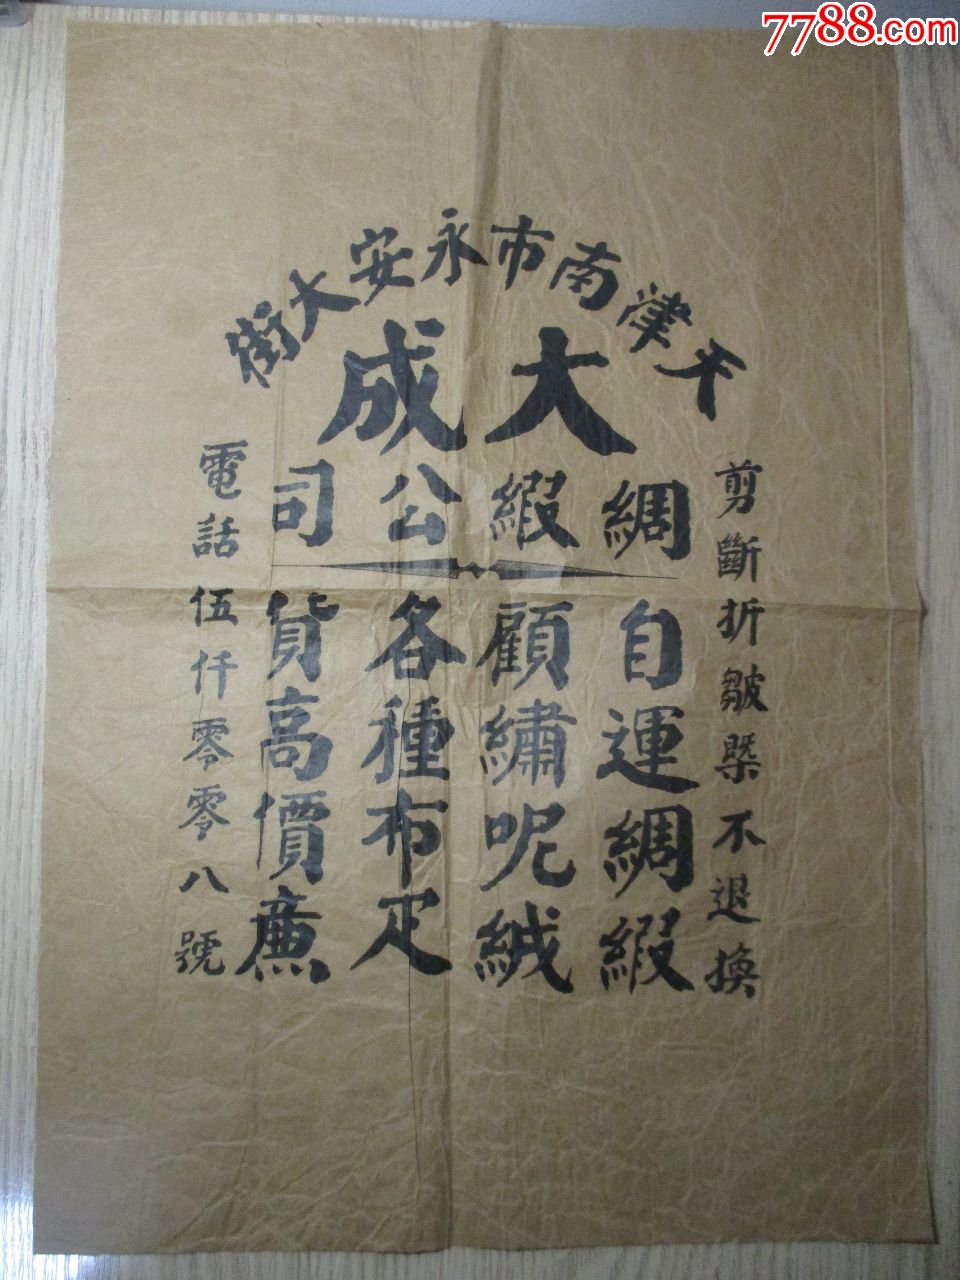 7788.com
天津南市永安大街
大成
綢緞公司
剪斷折皺槩不退換
自運綢緞
顧繡呢絨
各種布疋
貨高價廉
電話伍仟零零八號